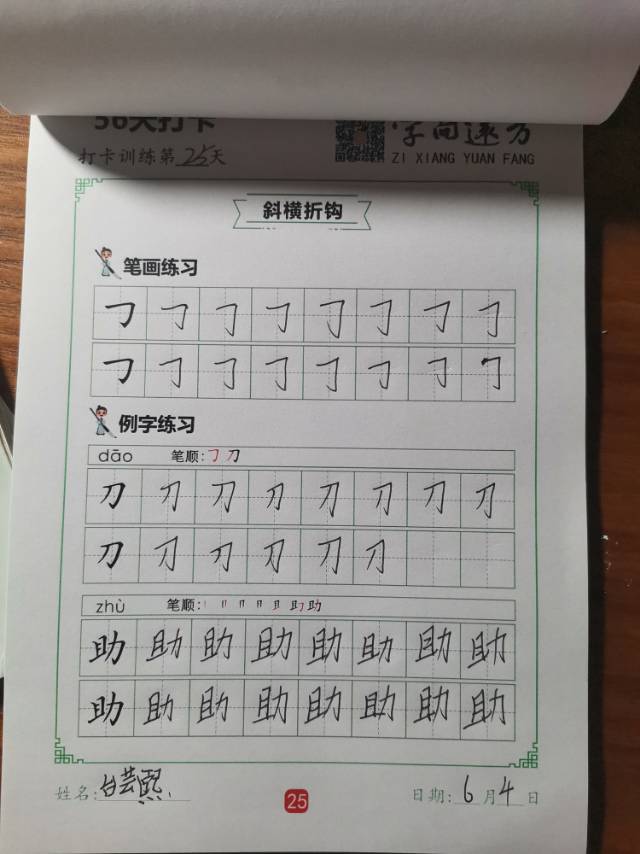 56天打卡 字向遠方
打卡训练第25天 ZI XIANG YUAN FANG
斜横折钩
笔画练习
㇆ ㇆ ㇆ ㇆ ㇆ ㇆ ㇆ ㇆
㇆ ㇆ ㇆ ㇆ ㇆ ㇆ ㇆ ㇆
例字练习
dāo 笔顺:㇆ 刀
刀 刀 刀 刀 刀 刀 刀 刀
刀 刀 刀 刀 刀 刀
zhù 笔顺: 助
助 助 助 助 助 助 助 助
助 助 助 助 助 助 助 助
姓名:台芸熙 25 日期:6月4日